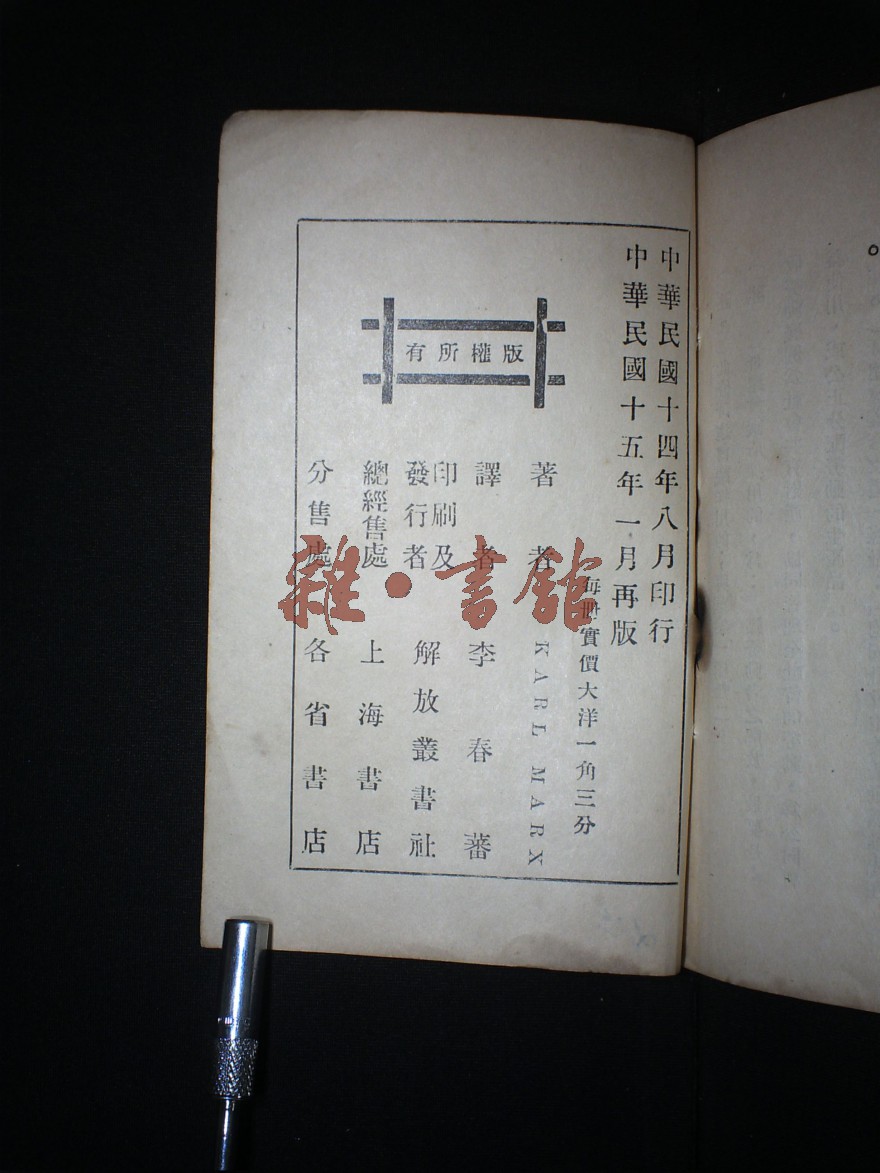 中華民國十四年八月印行
中華民國十五年一月再版
每册實價大洋一角三分
版權所有
著者 KARL MARX
譯者 李春蕃
印刷及發行者 解放叢書社
總經售處 上海書店
分售處 各省書店
雜·書館